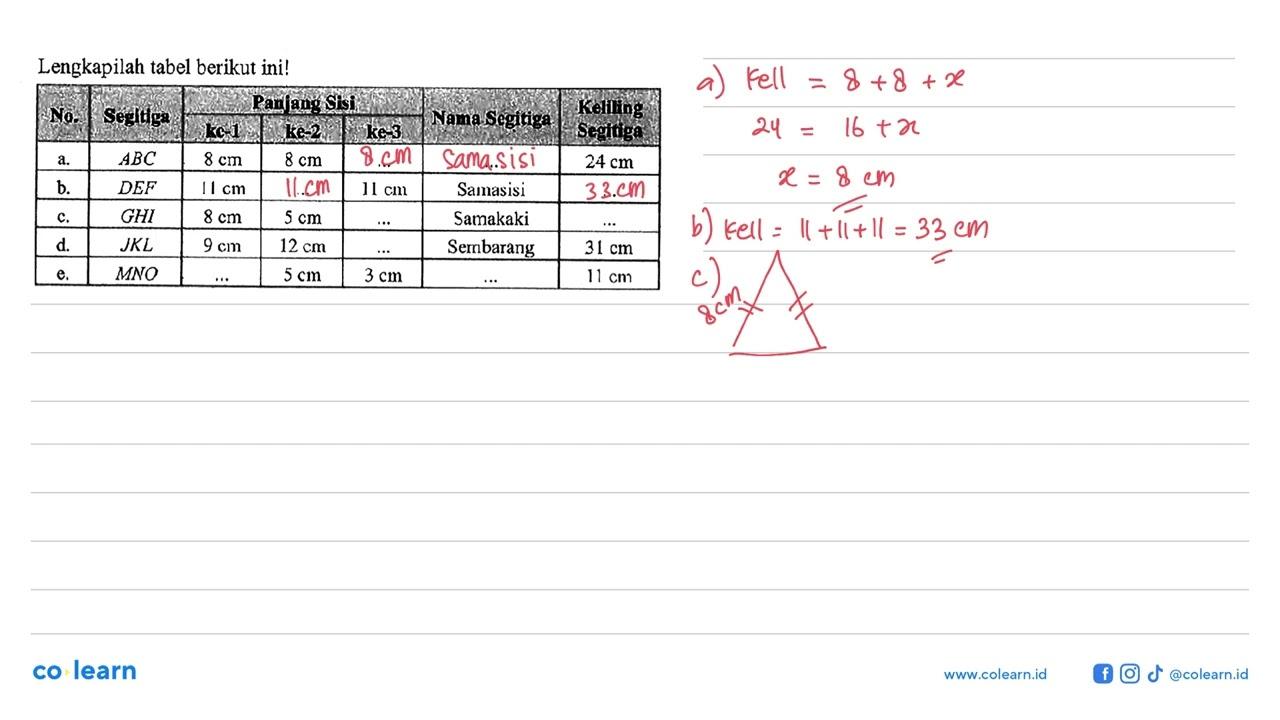 Lengkapilah tabel berikut ini!
No. Segitiga Panjang Sisi Nama Segitiga Keliling Segitiga
ke-1 ke-2 ke-3
a. ABC 8 cm 8 cm 8 cm samasisi 24 cm
b. DEF 11 cm 11 cm 11 cm Samasisi 33 cm
c. GHI 8 cm 5 cm ... Samakaki ...
d. JKL 9 cm 12 cm ... Sembarang 31 cm
e. MNO ... 5 cm 3 cm ... 11 cm
a) Kell = 8 + 8 + x
24 = 16 + x
x = 8 cm
b) Kell = 11 + 11 + 11 = 33 cm
c)
8 cm
co learn
www.colearn.id
@colearn.id